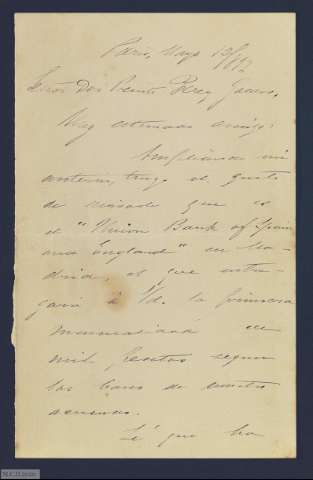 Paris, Mayo 12/97
Señor Don Benito Perez Galdos,
Muy estimado amigo:
Ampliando mi
anterior, tengo el gusto
de decirle que es
el "Union Bank of Spain
and England" en Ma-
drid, el que entre-
gará á Vd. la primera
mensualidad de
mil pesetas segun
las bases de nuestro
Sé que ha